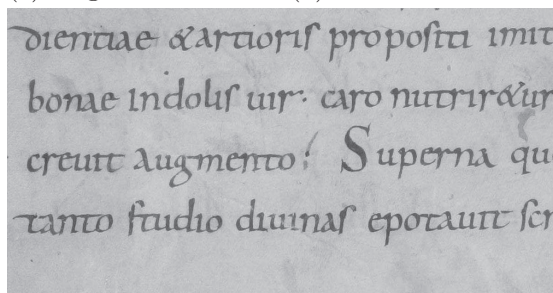 dientiae &artioris propositi imit
bonae indolis uir· caro nutrir&ur
creuit augmento: Superna qu
tanto studio diuinas epotauit scr